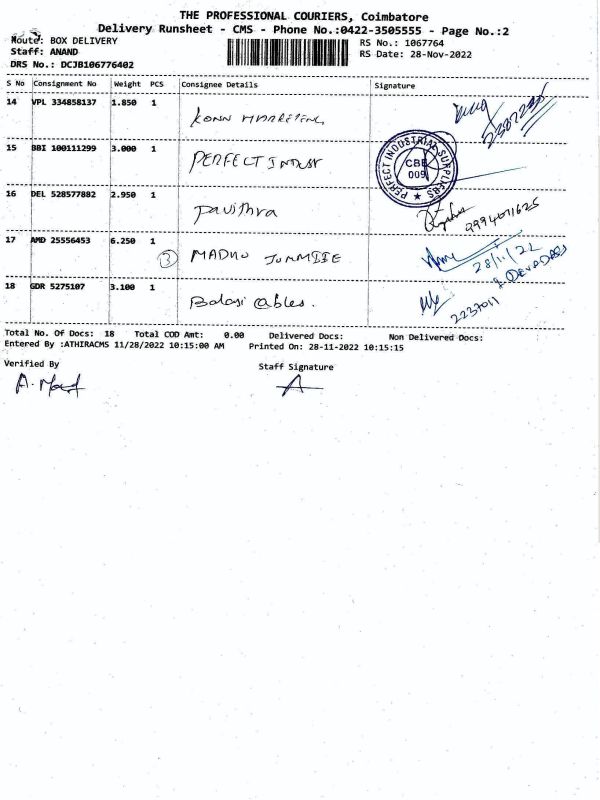 THE PROFESSIONAL COURIERS, Coimbatore
Delivery Runsheet - CMS - Phone No.:0422-3505555 - Page No.:2
Route: BOX DELIVERY
RS No.: 1067764
Staff: ANAND
RS Date: 28-Nov-2022
DRS No.: DCJB106776402
S No Consignment No Weight PCS Consignee Details Signature
14 VPL 334858137 1.850 1
15 BBI 100111299 3.000 1 PERFECT INDUST
PERFECT INDUSTRIAL SUPPLIERS
CBE
009
16 DEL 528577882 2.950 1 Pavithra
9994011625
17 AMD 25556453 6.250 1
3 MADHU
28/11/22
18 GDR 5275107 3.100 1 Balasi
2237011
Total No. Of Docs: 18 Total COD Amt: 0.00 Delivered Docs: Non Delivered Docs:
Entered By :ATHIRACMS 11/28/2022 10:15:00 AM Printed On: 28-11-2022 10:15:15
Verified By Staff Signature